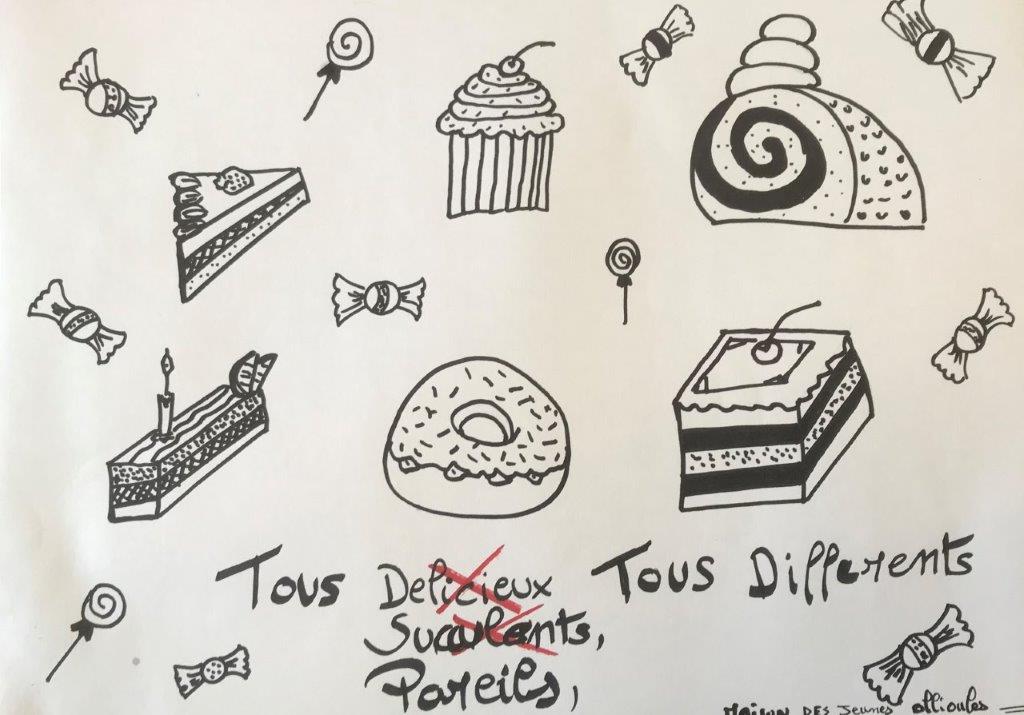 Tous Delicieux Tous Différents
Succulents,
Pareils,
Maison DES Jeunes Ollioules